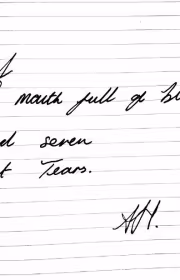 mouth full of bl
d seven
t Tears.
AH.